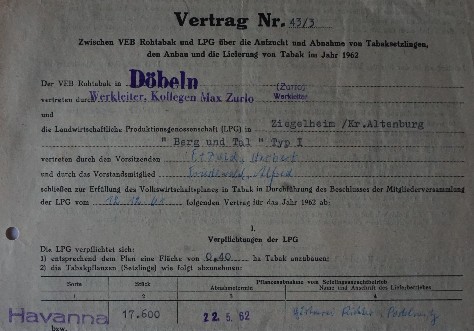 Vertrag Nr. 43/3
Zwischen VEB Rohtabak und LPG über die Aufzucht und Abnahme von Tabaksetzlingen,
den Anbau und die Lieferung von Tabak im Jahr 1962
Der VEB Rohtabak in Döbeln (Zurlo)
vertreten durch Werkleiter, Kollegen Max Zurlo Werkleiter
und
die Landwirtschaftliche Produktionsgenossenschaft (LPG) in Ziegelheim /Kr.Altenburg
" Berg und Tal " Typ I
vertreten durch den Vorsitzenden Herbert
und durch das Vorstandsmitglied Alfred
schließen zur Erfüllung des Volkswirtschaftsplanes in Tabak in Durchführung des Beschlusses der Mitgliederversammlung
der LPG vom folgenden Vertrag für das Jahr 1962 ab:
I.
Verpflichtungen der LPG
Die LPG verpflichtet sich:
1) entsprechend dem Plan eine Fläche von 0,40 ha Tabak anzubauen:
2) die Tabakpflanzen (Setzlinge) wie folgt abzunehmen:
Sorte Stück Pflanzenabnahme vom Setzlingsanzuchtbetrieb
Abnahmetermin Name und Anschrift des Lieferbetriebes
1 2 3 4
Havanna 17.600 22.5.62 Richter
bzw.